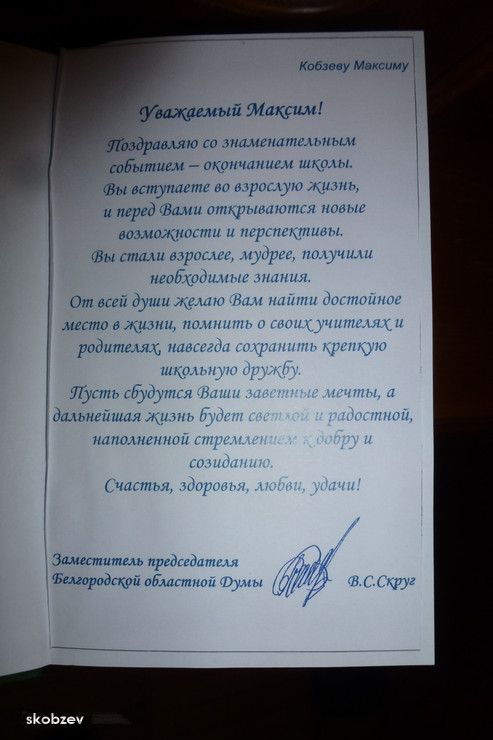 Кобзеву Максиму
Уважаемый Максим!
Поздравляю со знаменательным
событием – окончанием школы.
Вы вступаете во взрослую жизнь,
и перед Вами открываются новые
возможности и перспективы.
Вы стали взрослее, мудрее, получили
необходимые знания.
От всей души желаю Вам найти достойное
место в жизни, помнить о своих учителях и
родителях, навсегда сохранить крепкую
школьную дружбу.
Пусть сбудутся Ваши заветные мечты, а
дальнейшая жизнь будет светлой и радостной,
наполненной стремлением к добру и
созиданию.
Счастья, здоровья, любви, удачи!
Заместитель председателя
Белгородской областной Думы В.С.Скруг
skobzev